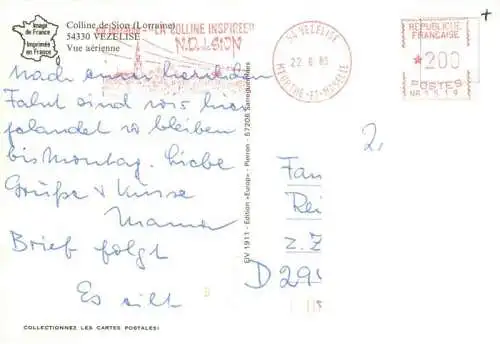 Image
de France
Imprimée
en France
Colline de Sion (Lorraine)
54330 VEZELISE
Vue aérienne
LA COLLINE INSPIREE
N.D. de SION
54 VEZELISE
22 8 85
MEURTHE-ET-MOSELLE
REPUBLIQUE
FRANCAISE
200
POSTES
Nach einer herrlichen
Fahrt sind wir hier
gelandet u bleiben
bis Montag. Liebe
Grüße + Küsse
Mama
Brief folgt
Es eilt
2,
Fam
Rei
z. Z
D 299
EIV 1911 - Edition «Europ» - Pierron - 57206 Sarreguemines
COLLECTIONNEZ LES CARTES POSTALES!